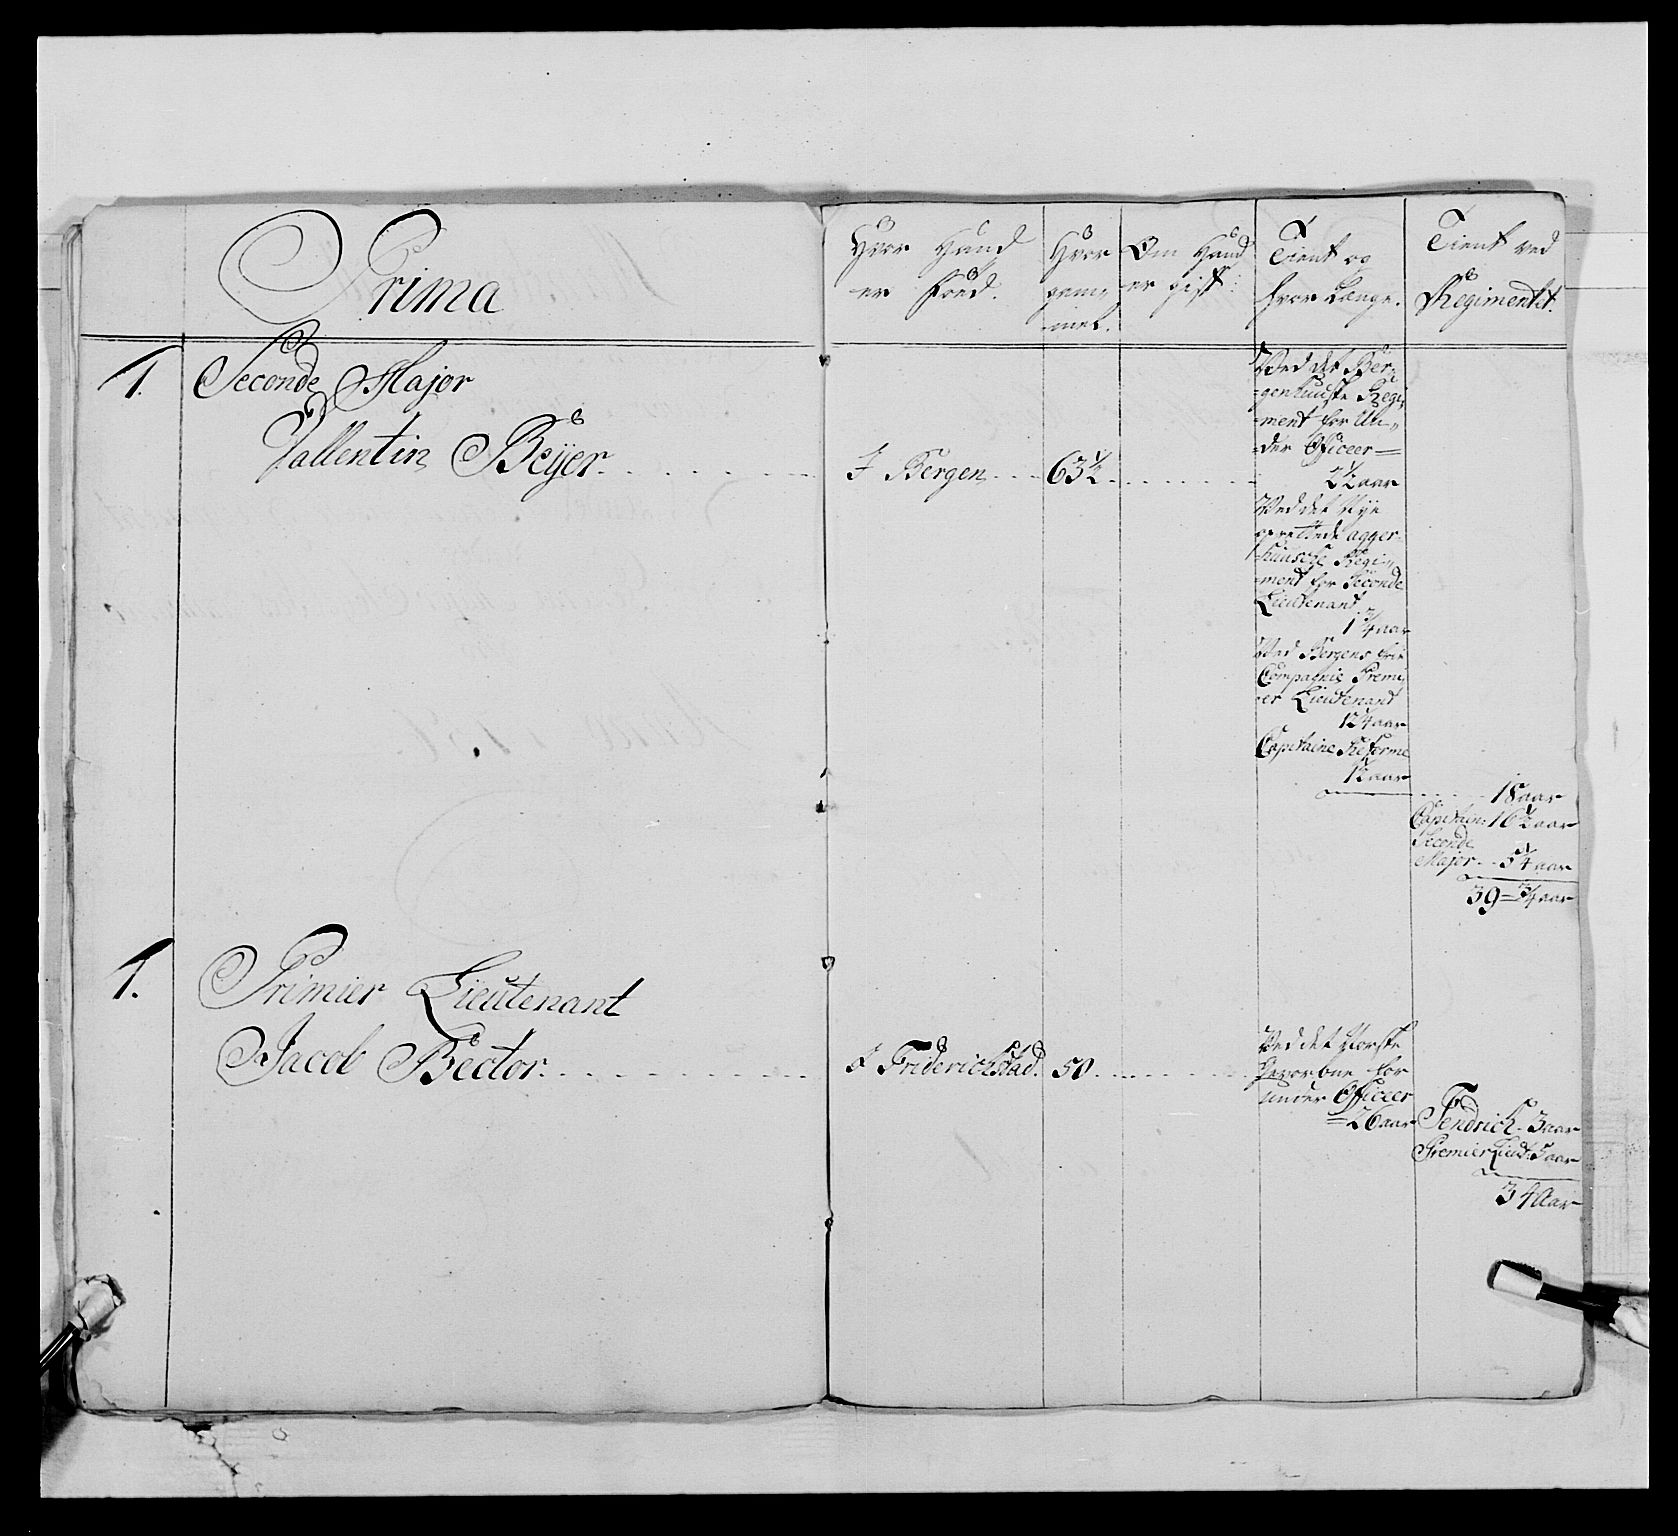 Prima
Hvor Hand
er Föed.
Hvor
gam„
„mel.
Om Hand
er gift:
Tient og
hvor Længe.
Tient ved
Regimentet.
1. Seconde Major
Vallentin Beÿer
I Bergen
63½
Ved det Ber„
„genhuuske Regi„
„ment for Un„
„der Officeer
2½ aar
Ved det Nye
oprettede agger„
„huusche Regi„
„ment for Seconde
Lieutenant
1¾ aar
Ved Bergens frie
Compagnie Premi„
„er Lieutenant
12¼ aar
Capitaine Reforme
1½ aar
18 aar
Capitain: 16½ aar
Seconde
Major 5¼ aar
39=¾ aar
1. Primier Lieutenant
Jacob Bector
I Friderichstad.
50
Ved det Norske
Hvorbne for
under Officeer
=26 aar
Fendrich 3 aar
Premier Lieut: 5 aar
34 Aar